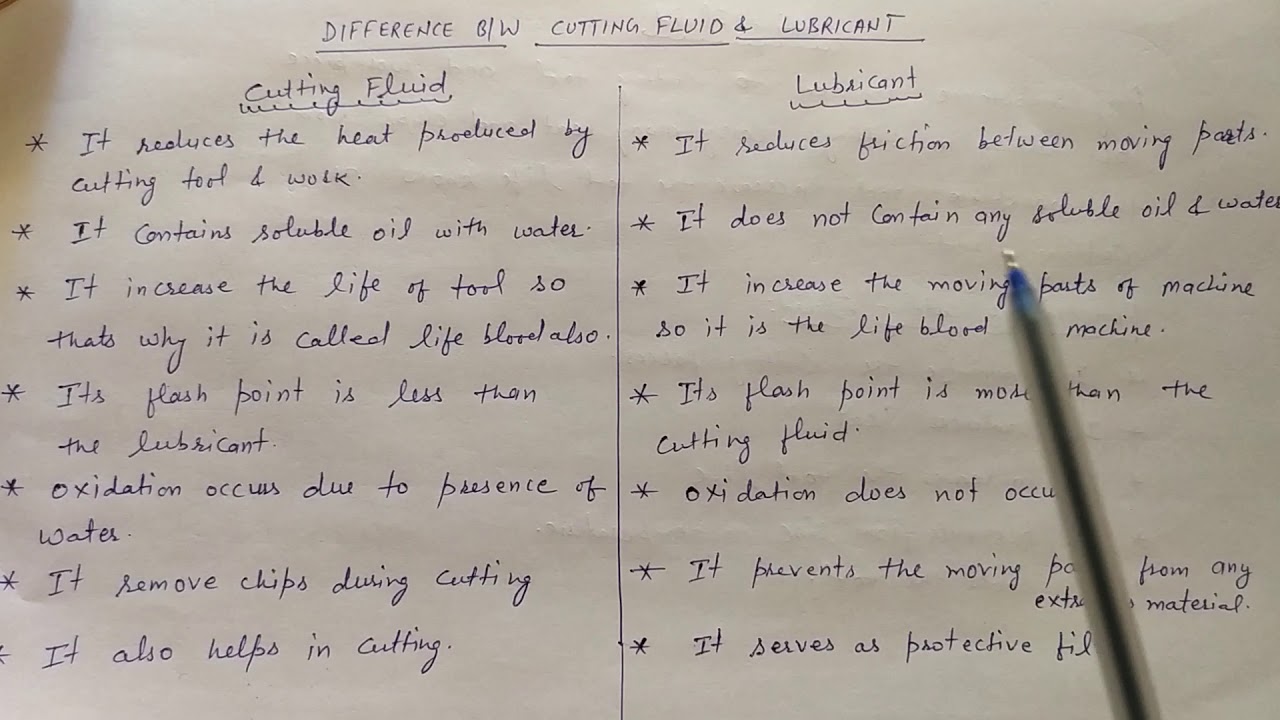 DIFFERENCE B/W CUTTING FLUID & LUBRICANT
Cutting Fluid
* It reduces the heat produced by
cutting tool & work.
* It contains soluble oil with water.
* It increase the life of tool so
thats why it is called life blood also.
* Its flash point is less than
the lubricant.
* oxidation occurs due to presence of
water.
* It remove chips during cutting
* It also helps in cutting.
Lubricant
* It reduces friction between moving parts.
* It does not contain any soluble oil & water
* It increase the moving parts of machine
so it is the life blood machine.
* Its flash point is more than the
cutting fluid.
* oxidation does not occu
* It prevents the moving from any
material.
* It serves as protective fil